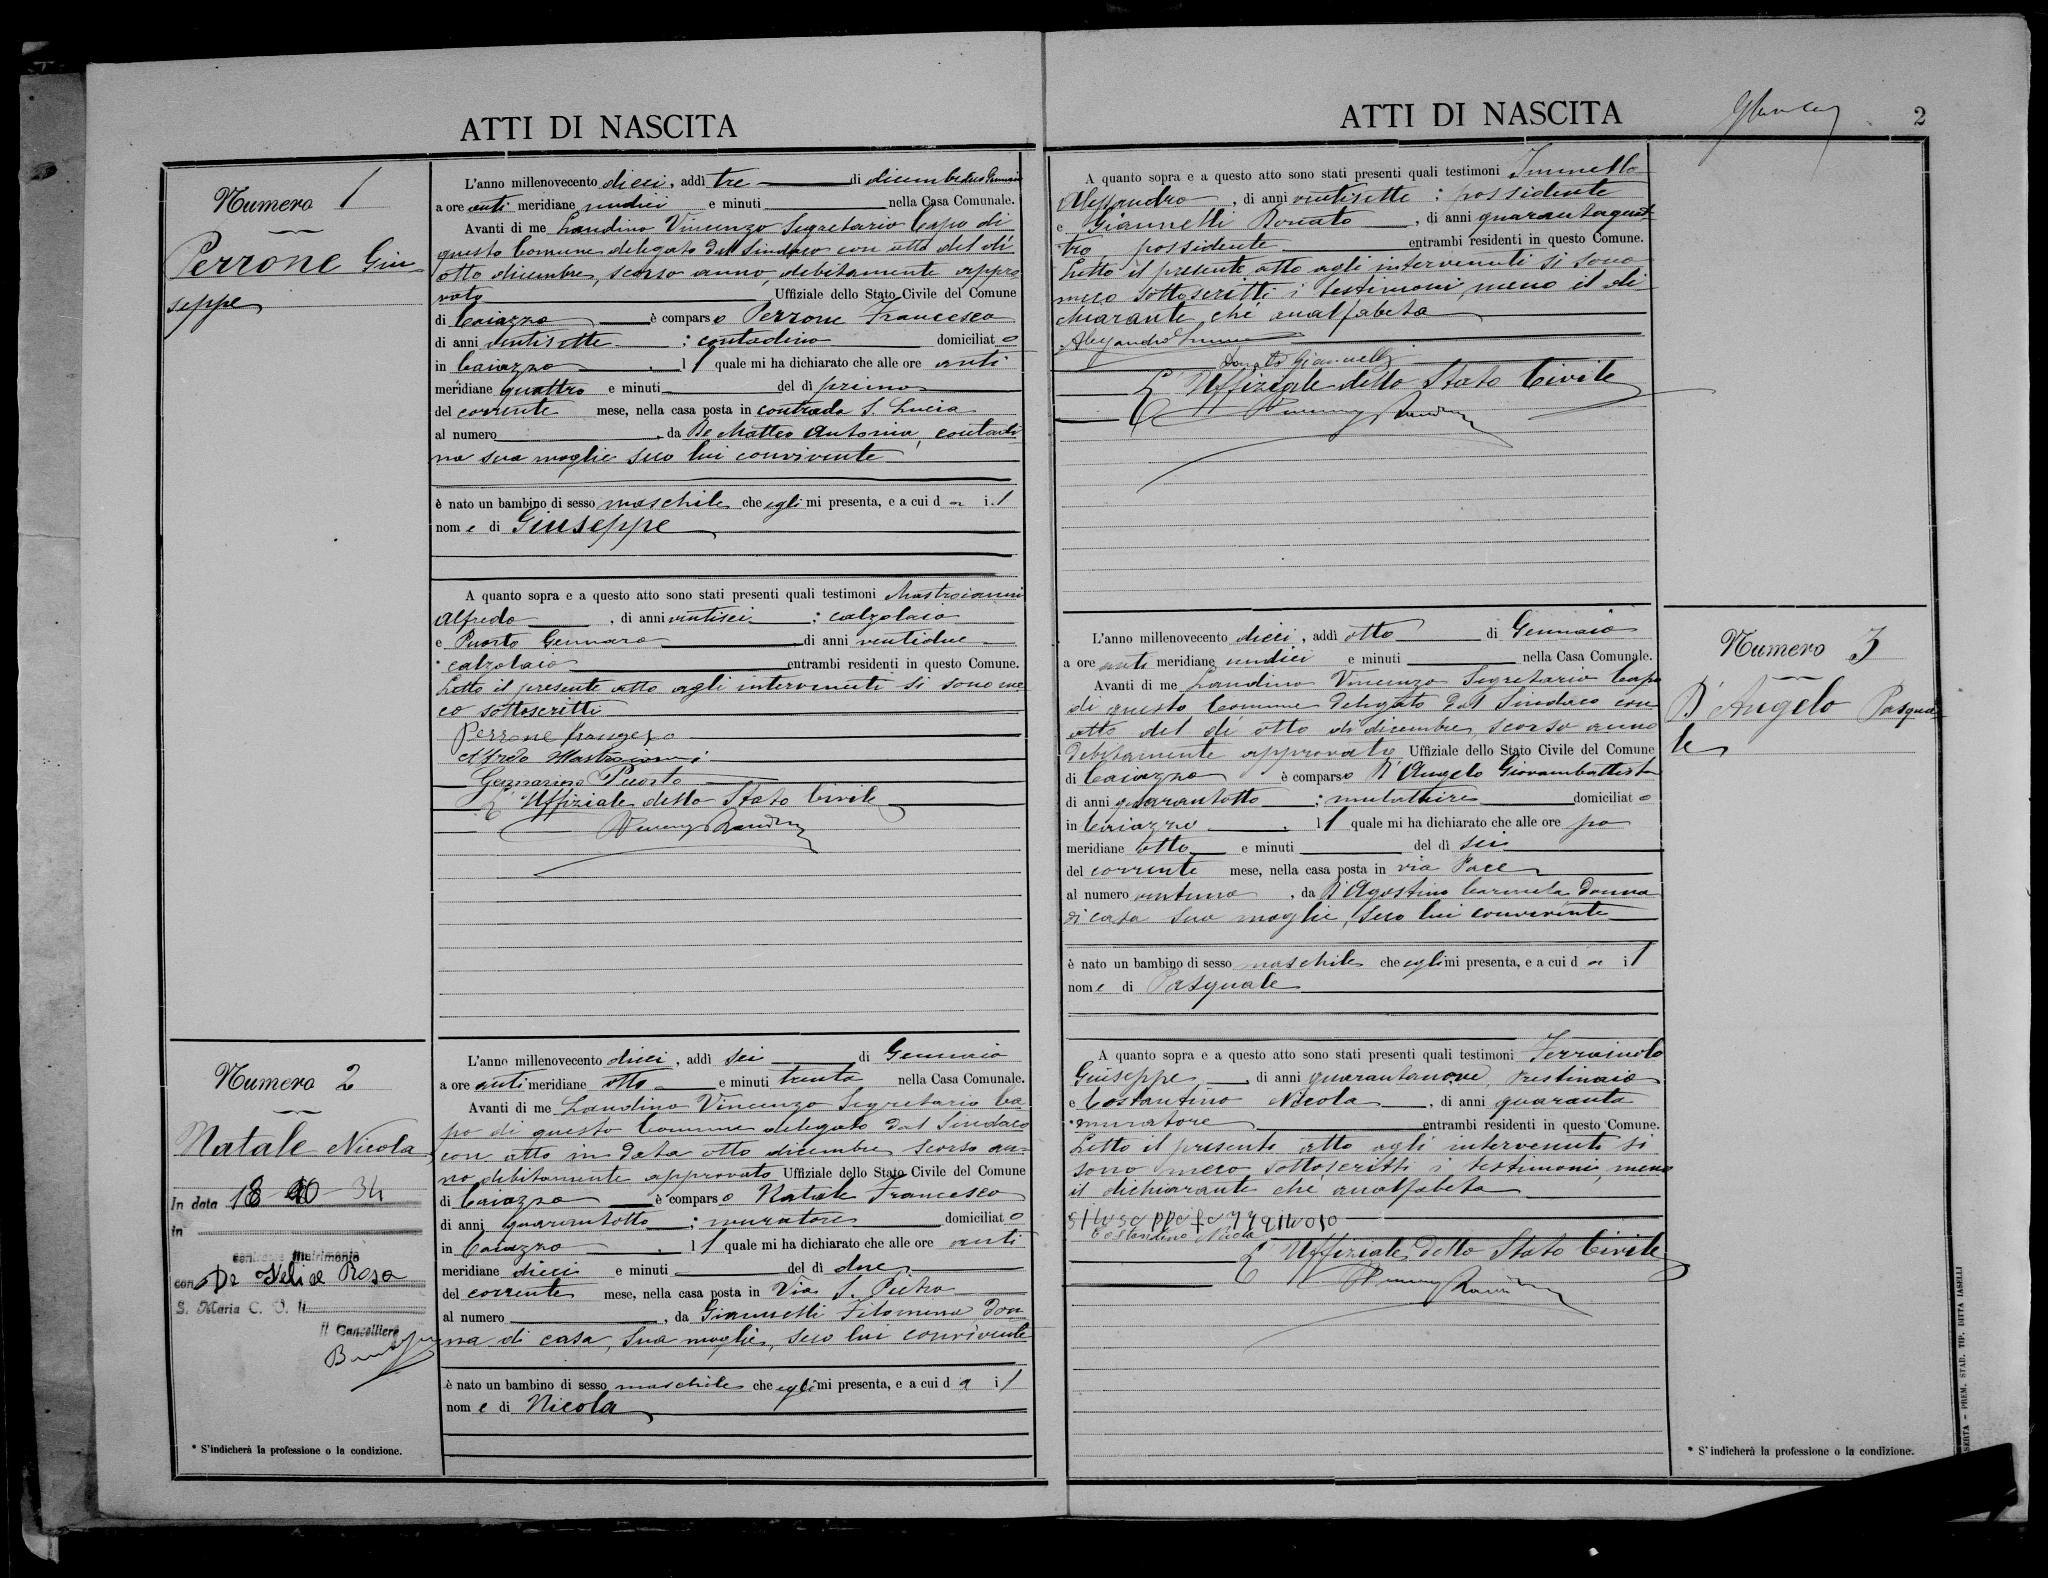 ATTI DI NASCITA
Numero 1
Perrone Giu
seppe
L'anno millenovecento dieci, addì tre di dicembre Gennaio
a ore anti meridiane undici e minuti nella Casa Comunale.
Avanti di me Landino Vincenzo Segretario Capo di
questo Comune delegato dal Sindaco con atto del dì
otto dicembre, scorso anno, debitamente appro
vato Uffiziale dello Stato Civile del Comune
di Caiazzo è comparso Perrone Francesco
di anni ventisette ; contadino domiciliato
in Caiazzo, il quale mi ha dichiarato che alle ore anti
meridiane quattro e minuti del dì primo
del corrente mese, nella casa posta in contrada S. Lucia
al numero , da De Matteo Antonia, contadi
na sua moglie seco lui convivente
è nato un bambino di sesso maschile che egli mi presenta, e a cui dà il
nome di Giuseppe
A quanto sopra e a questo atto sono stati presenti quali testimoni Mastroianni
Alfredo , di anni ventisei ; calzolaio
e Puorto Gennaro di anni ventidue
calzolaio entrambi residenti in questo Comune.
Letto il presente atto agli intervenuti si sono me
co sottoscritti
Perrone Francesco
Alfredo Mastroianni
Gennarino Puorto
L'Uffiziale dello Stato Civile
Numero 2
Natale Nicola
In data 18 10 34
in
contrasse matrimonio
con De Felice Rosa
S. Maria C. V. li
Il Cancelliere
L'anno millenovecento dieci, addì sei di Gennaio
a ore anti meridiane otto e minuti trenta nella Casa Comunale.
Avanti di me Landino Vincenzo Segretario Ca
po di questo Comune delegato dal Sindaco
con atto in data otto dicembre scorso an
no debitamente approvato Uffiziale dello Stato Civile del Comune
di Caiazzo è comparso Natale Francesco
di anni quarantotto ; muratore domiciliato
in Caiazzo, il quale mi ha dichiarato che alle ore anti
meridiane dieci e minuti del dì due
del corrente mese, nella casa posta in Via S. Pietro
al numero , da Giannelli Filomena don
na di casa, sua moglie, seco lui convivente
è nato un bambino di sesso maschile che egli mi presenta, e a cui dà il
nome di Nicola
* S'indicherà la professione o la condizione.
ATTI DI NASCITA
2
A quanto sopra e a questo atto sono stati presenti quali testimoni
Alessandro , di anni ventisette ; possidente
e Giannelli Donato , di anni quarantaquat
tro possidente entrambi residenti in questo Comune.
Letto il presente atto agli intervenuti si sono
meco sottoscritti i testimoni, meno il di
chiarante ché analfabeta
Donato Giannelli
L'Uffiziale dello Stato Civile
Numero 3
D'Angelo Pasqua
le
L'anno millenovecento dieci, addì otto di Gennaio
a ore anti meridiane undici e minuti nella Casa Comunale.
Avanti di me Landino Vincenzo Segretario Capo
di questo Comune delegato dal Sindaco con
atto del dì otto di dicembre, scorso anno
debitamente approvato Uffiziale dello Stato Civile del Comune
di Caiazzo è comparso D'Angelo Giovambattista
di anni quarantotto ; mulattiere domiciliato
in Caiazzo, il quale mi ha dichiarato che alle ore po
meridiane otto e minuti del dì sei
del corrente mese, nella casa posta in via Pace
al numero ventuno , da D'Agostino Carmela donna
di casa sua moglie, seco lui convivente
è nato un bambino di sesso maschile che egli mi presenta, e a cui dà il
nome di Pasquale
A quanto sopra e a questo atto sono stati presenti quali testimoni Ferraiuolo
Giuseppe, di anni quarantanove, prestinaio
e Costantino Nicola , di anni quaranta
muratore entrambi residenti in questo Comune.
Letto il presente atto agli intervenuti si
sono meco sottoscritti i testimoni, meno
il dichiarante ché analfabeta
Costantino Nicola
L'Uffiziale dello Stato Civile
* S'indicherà la professione o la condizione.
SERTA - PREM. STAB. TIP. DITTA IASELLI